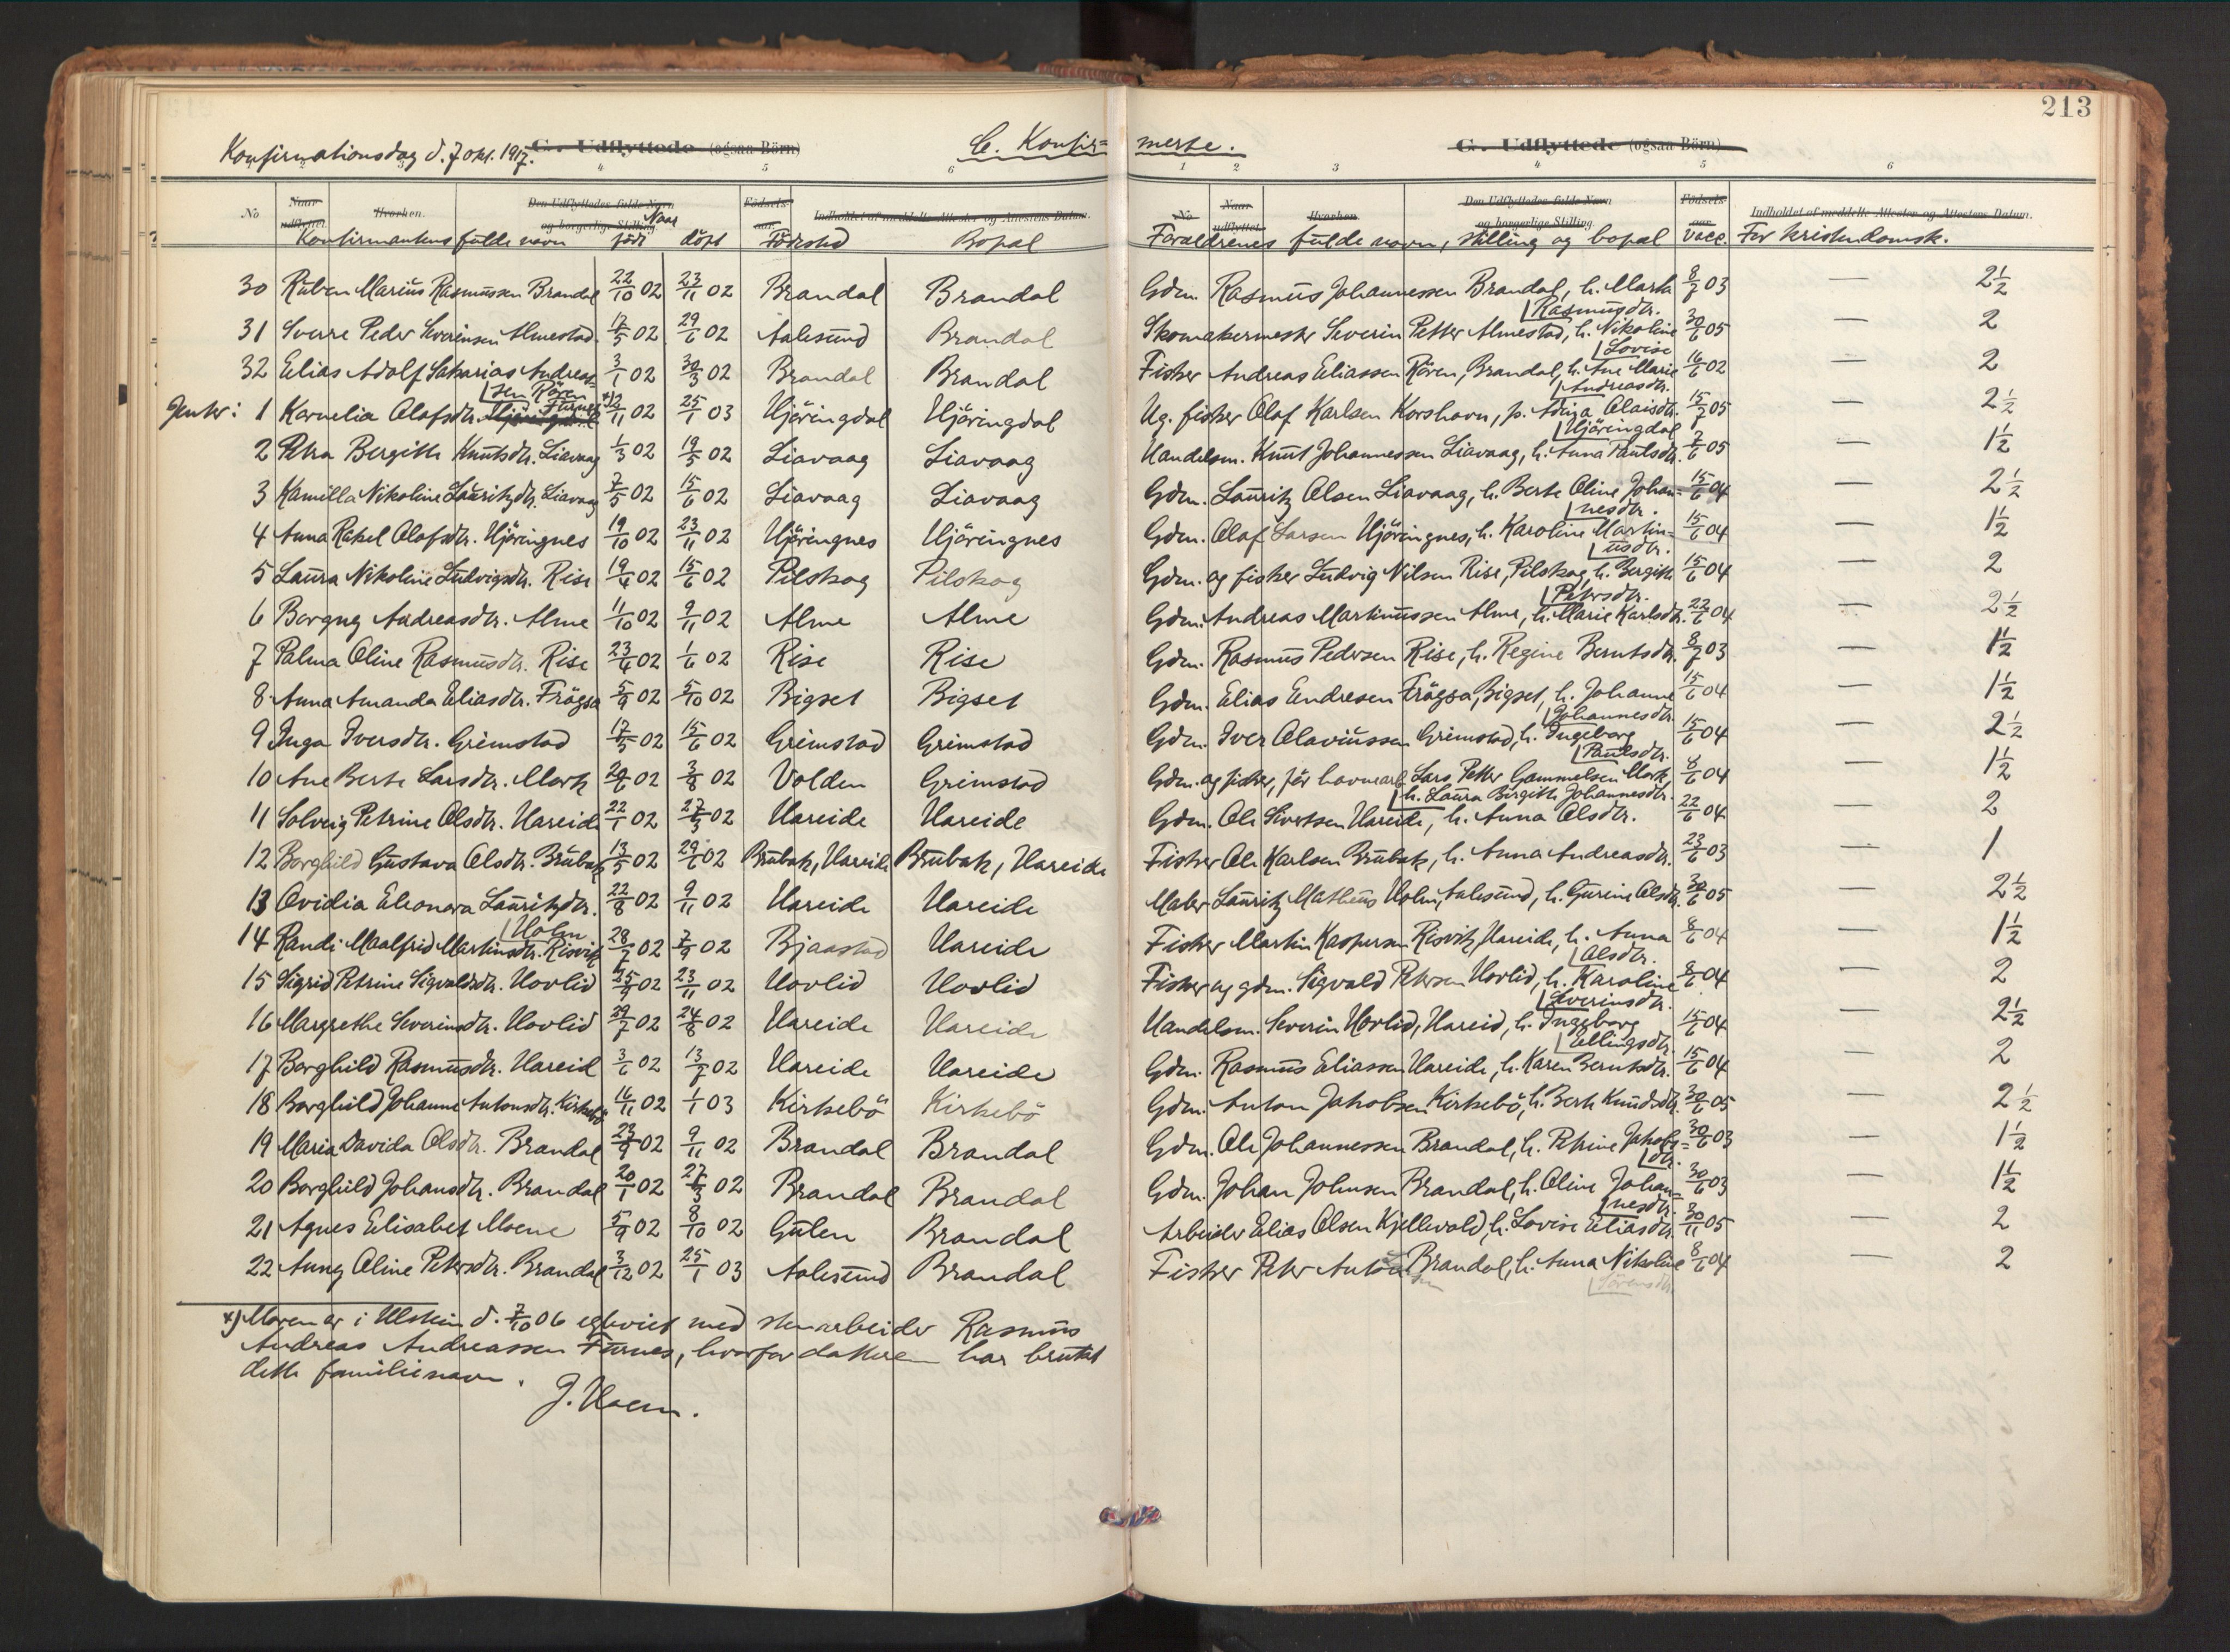 213
Konfirmationsdag d. 7 okt. 1917. G. Udflyttede (ogsaa Börn) C. Konfir=
merte. G. Udflyttede (ogsaa Börn)
4 5 6
1 2 3 4 5 6
No Naar udflyttet. Hvorhen. Den Udflyttedes fulde Navn og borgerlige Stilling. Födsels-aar. Indholdet af meddelte Attester og Attestens Datum.
Konfirmantens fulde navn Naar född döpt Födested Bopæl
No Naar udflyttet. Hvorhen Den Udflyttedes fulde Navn og borgerlige Stilling. Födsels-aar. Indholdet af meddelte Attester og Attestens Datum.
Forældrenes fulde navn, stilling og bopæl vacc. For kristendomsk.
30 Ruben Marius Rasmussen Brandal 22/10 02 23/11 02 Brandal Brandal Gdm. Rasmus Johannessen Brandal, h. Marta Rasmusdtr. 8/7 03 — 2½
31 Sverre Peder Severinsen Almestad 17/5 02 29/6 02 Aalesund Brandal Skomakermester Severin Petter Almestad, h. Nikoline Lovise 30/6 05 — 2
32 Elias Adolf Sakarias Andreas=sen Rören 3/1 02 30/3 02 Brandal Brandal Fisker Andreas Eliassen Rören, Brandal, h. Ane Marie Andreasdtr. 16/6 02 — 2
Jenter: 1 Kornelia Olafsdtr. Furnes *) 2/11 02 25/1 03 Hjöringdal Hjöringdal Ug. fisker Olaf Karlsen Korshavn, p. Olaisdtr. Hjöringdal 15/7 05 — 2½
2 Petra Bergitte Knutsdtr. Liavaag 1/3 02 19/5 02 Liavaag Liavaag Handelsm. Knut Johannessen Liavaag, h. Anna Paulsdtr. 7/6 05 — 1½
3 Kamilla Nikoline Lauritzdtr. Liavaag 7/5 02 15/6 02 Liavaag Liavaag Gdm. Lauritz Olsen Liavaag, h. Berte Oline Johan=nesdtr. 15/6 04 — 2½
4 Anna Rakel Olafsdtr. Hjöringnes 19/10 02 23/11 02 Hjöringnes Hjöringnes Gdm. Olaf Larsen Hjöringnes, h. Karoline Martin=usdtr. 15/6 04 — 1½
5 Laura Nikoline Ludvigsdtr. Rise 19/4 02 15/6 02 Pilskog Pilskog Gdm. og fisker Ludvig Nilsen Rise, Pilskog, h. Bergitte Petersdtr. 15/6 04 — 2
6 Borgny Andreasdtr. Alme 11/10 02 9/11 02 Alme Alme Gdm. Andreas Martinussen Alme, h. Marie Karlsdtr. 22/6 04 — 2½
7 Palma Oline Rasmusdtr. Rise 23/4 02 1/6 02 Rise Rise Gdm. Rasmus Pedersen Rise, h. Regine Berntsdtr. 8/7 03 — 1½
8 Anna Amanda Eliasdtr. Frögsa 5/9 02 5/10 02 Bigset Bigset Gdm. Elias Endresen Frögsa, Bigset, h. Johanne Johannesdtr. 15/6 04 — 1½
9 Inga Iversdtr. Grimstad 17/5 02 15/6 02 Grimstad Grimstad Gdm. Iver Olaviussen Grimstad, h. Ingeborg Paulsdtr. 15/6 04 — 2½
10 Ane Berte Larsdtr. Mork 02 3/8 02 Volden Grimstad Gdm. og fisker, för havnearb. Lars Petter Gammelsen Mork, h. Laura Bergitte Johannesdtr. 8/6 04 — 1½
11 Solveig Petrine Olsdtr. Hareide 22/1 02 27/3 02 Hareide Hareide Gdm. Ole Sivertsen Hareide, h. Anna Olsdtr. 22/6 04 — 2
12 Borghild Gustava Olsdtr. Brubak 13/5 02 29/6 02 Brubak, Hareide Brubak, Hareide Fisker Ole Karlsen Brubak, h. Anna Andreasdtr. 23/6 03 — 1
13 Ovidia Eleonora Lauritzdtr. Holm 22/8 02 9/11 02 Hareide Hareide Maler Lauritz Matheus Holm, Aalesund, h. Gurine Olsdtr. 30/6 05 — 2½
14 Randi Maalfrid Martinsdtr. Risvik 28/7 02 7/9 02 Bjaastad Hareide Fisker Martin Kaspersen Risvik, Hareide, h. Anna Olsdtr. 8/6 04 — 1½
15 Sigrid Petrine Sigvaldsdtr. Hovlid 25/9 02 23/11 02 Hovlid Hovlid Fisker og gdm. Sigvald Petersen Hovlid, h. Karoline Severinsdtr. 8/6 04 — 2
16 Margrethe Severinsdtr. Hovlid 29/7 02 24/8 02 Hareide Hareide Handelsm. Severin Hovlid, Hareid, h. Ingeborg Ellingsdtr. 15/6 04 — 2½
17 Borghild Rasmusdtr. Hareid 3/6 02 13/7 02 Hareide Hareide Gdm. Rasmus Eliassen Hareide, h. Karen Berntsdtr. 15/6 04 — 2
18 Borghild Johanne Antonsdtr. Kirkebö 16/11 02 1/1 03 Kirkebö Kirkebö Gdm. Anton Jakobsen Kirkebö, h. Berte Knudsdtr. 30/6 05 — 2½
19 Maria Davida Olsdtr. Brandal 23/9 02 9/11 02 Brandal Brandal Gdm. Ole Johannessen Brandal, h. Petrine Jakobs=dtr. 30/6 03 — 1½
20 Borghild Johansdtr. Brandal 20/1 02 27/3 02 Brandal Brandal Gdm. Johan Johnsen Brandal, h. Oline Johan=nesdtr. 30/6 03 — 1½
21 Agnes Elisabet Moene 5/9 02 8/10 02 Gulen Brandal Arbeider Elias Olsen Kjellevold, h. Lovise Eliasdtr. 30/11 05 — 2
22 Anny Oline Petersdtr. Brandal 3/12 02 25/1 03 Aalesund Brandal Fisker Peter Antonsen Brandal, h. Anna Nikoline Sörensdtr. 8/6 04 — 2
*) Moren er i Ulstein d. 7/10 06 egteviet med stenarbeider Rasmus
Andreas Andreassen Furnes, hvorfor datteren har brukt
dette familienavn.
J. Hoem.